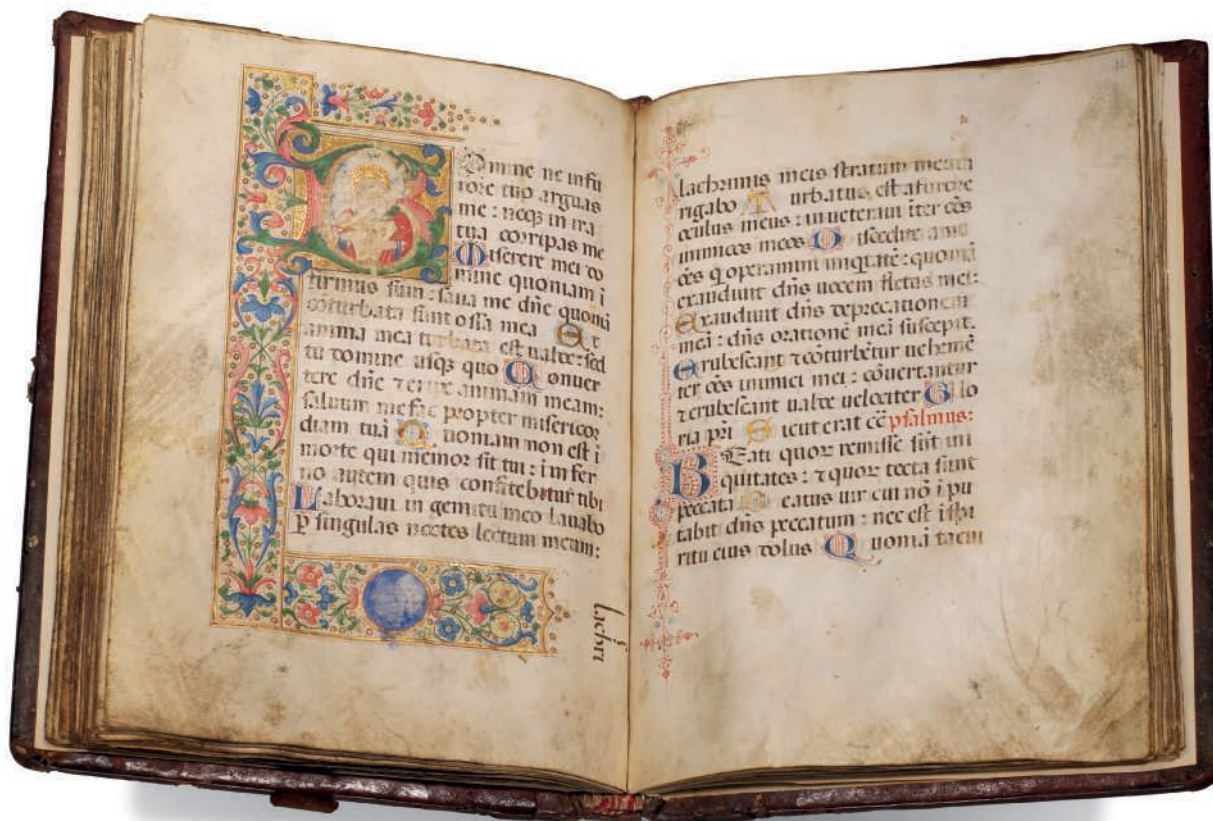 Domine ne infu
rore tuo arguas
me : neqꝫ in ira
tua corripas me
Miserere mei do
mine quoniam ī
firmus sum : sana me dñe quoniā
cōturbata sunt ossa mea Et
anima mea turbata est valde : sed
tu domine usqꝫ quo Conuer
tere dñe ⁊ eripe animam meam :
saluum me fac propter misericor
diam tuā Quoniam non est ī
morte qui memor sit tui : ī infer
no autem quis confitebitur tibi
Laboraui in gemitu meo lauabo
ꝑ singulas noctes lectum meum :
lachri
lachrimis meis stratum meum
rigabo Turbatus est a furore
oculus meus : inueteraui īter oēs
inimicos meos Discedite a me
oēs q̄ operamini iniqtatē : quoniā
exaudiuit dñs uocem fletus mei :
Exaudiuit dñs deprecationem
meā : dñs orationē meā suscepit.
Erubescant ⁊ cōturbētur uehemē
ter oēs inimici mei : cōuertantur
⁊ erubescant ualde uelociter Glo
ria pr̄i Sicut erat cē psalmus :
BEati quoꝝ remisse sūt ini
quitates : ⁊ quoꝝ tecta sunt
peccata Beatus uir cui nō īpu
tabit dñs peccatum : nec est ī spi
ritu eius dolus Quoniā tacui